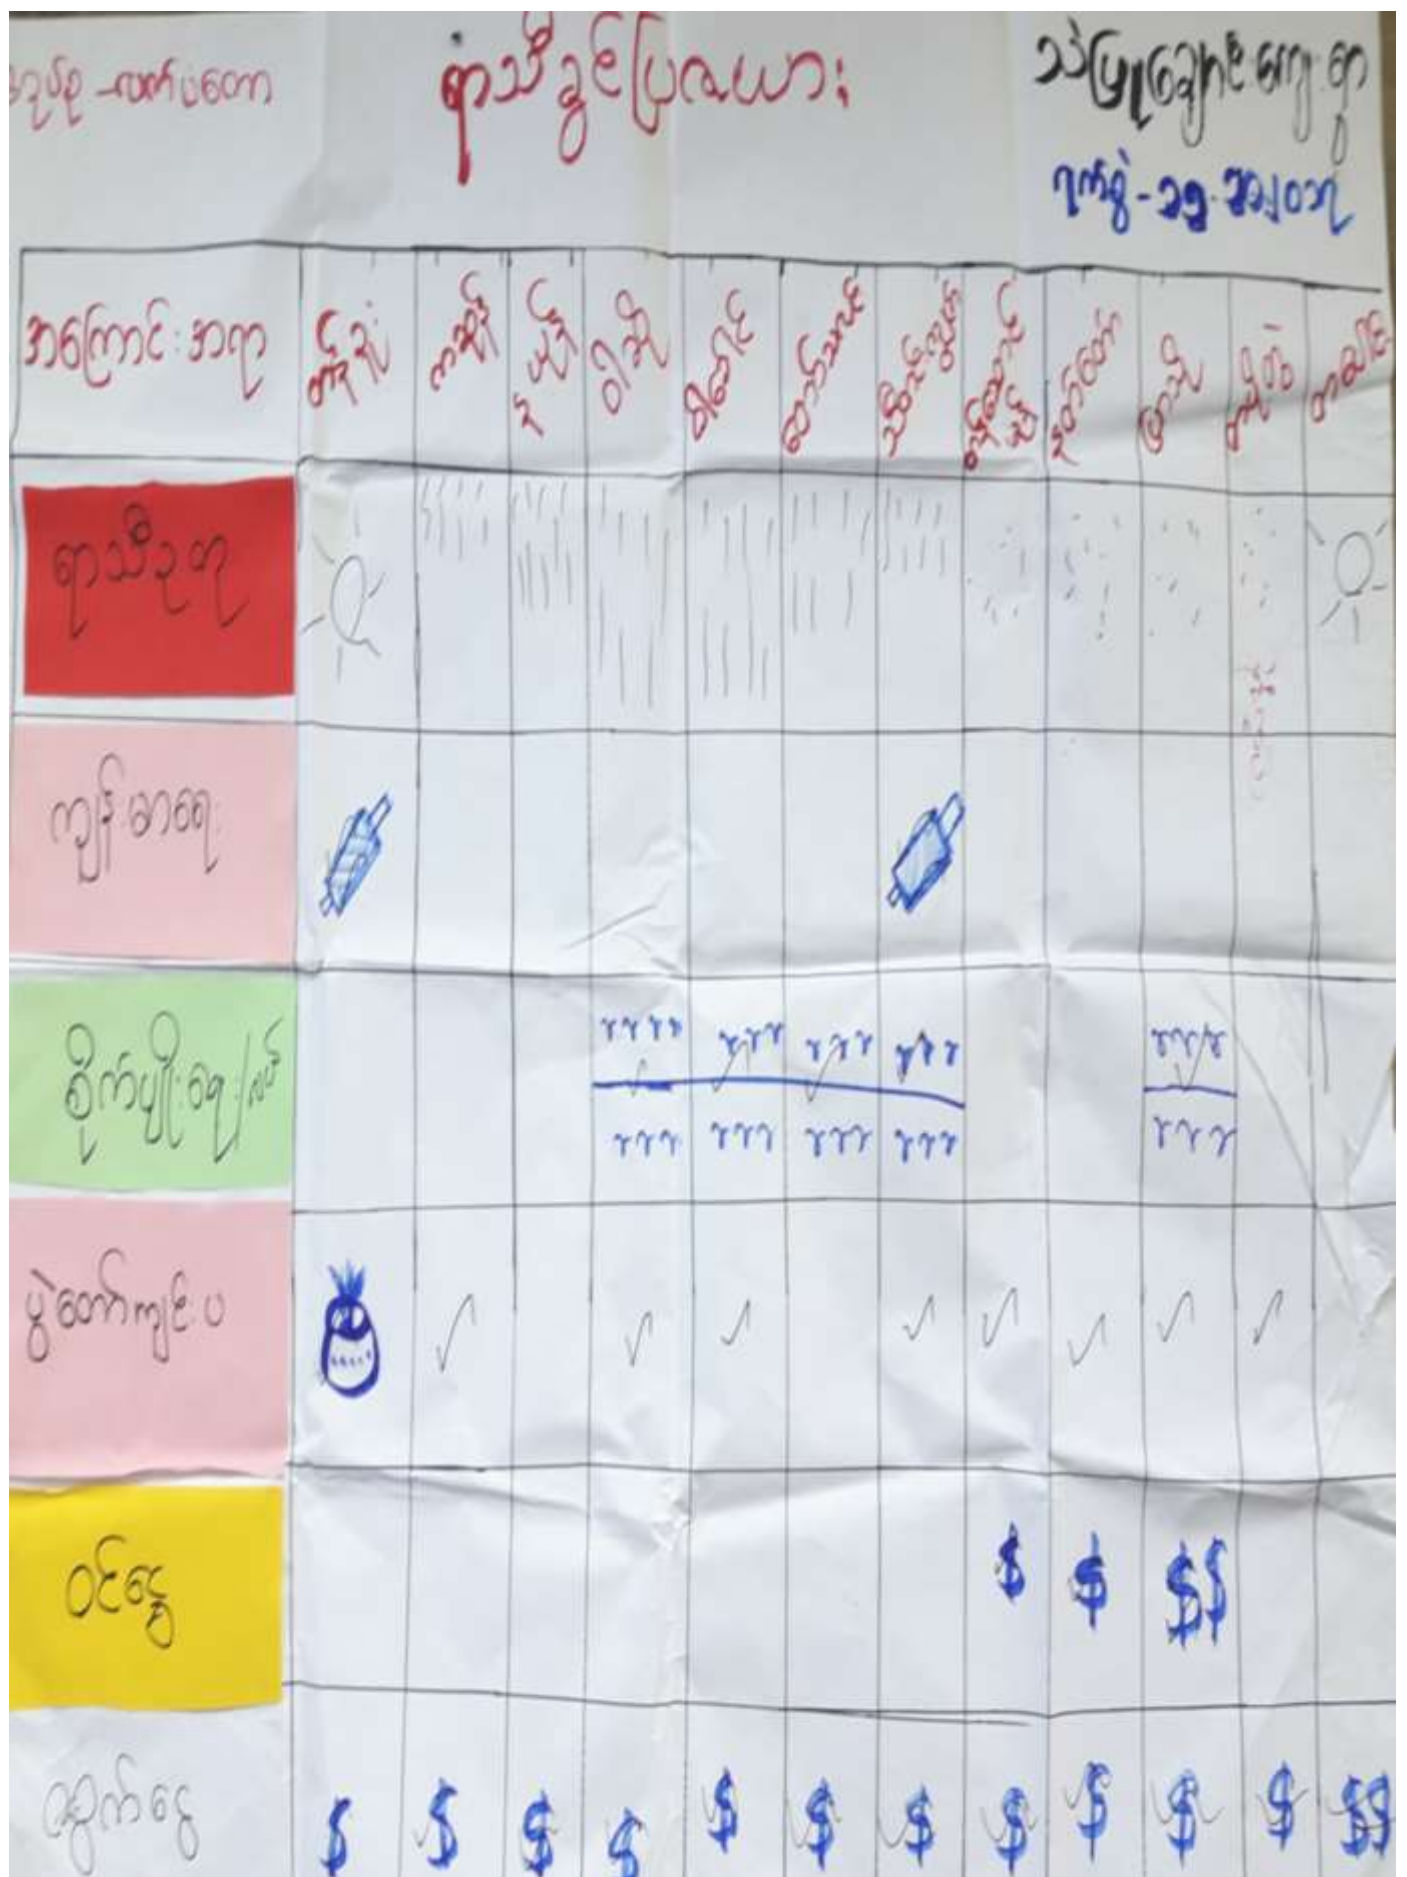 ရာသီခွင်ပြဇယား
သဲဖြူချောင်းကျေးရွာ
အကြောင်းအရာ တန်ခူး ကဆုန် နယုန် ဝါဆို ဝါခေါင် တော်သလင်း သီတင်းကျွတ် တန်ဆောင်မုန်း နတ်တော် ပြာသို တပို့တွဲ တပေါင်း
ရာသီဥတု
ကျန်းမာရေး
စိုက်ပျိုးရေး/လယ်
ပွဲတော်ကျင်းပ
ဝင်ငွေ $ $ $$
ထွက်ငွေ $ $ $ $ $ $ $ $ $ $ $ $$